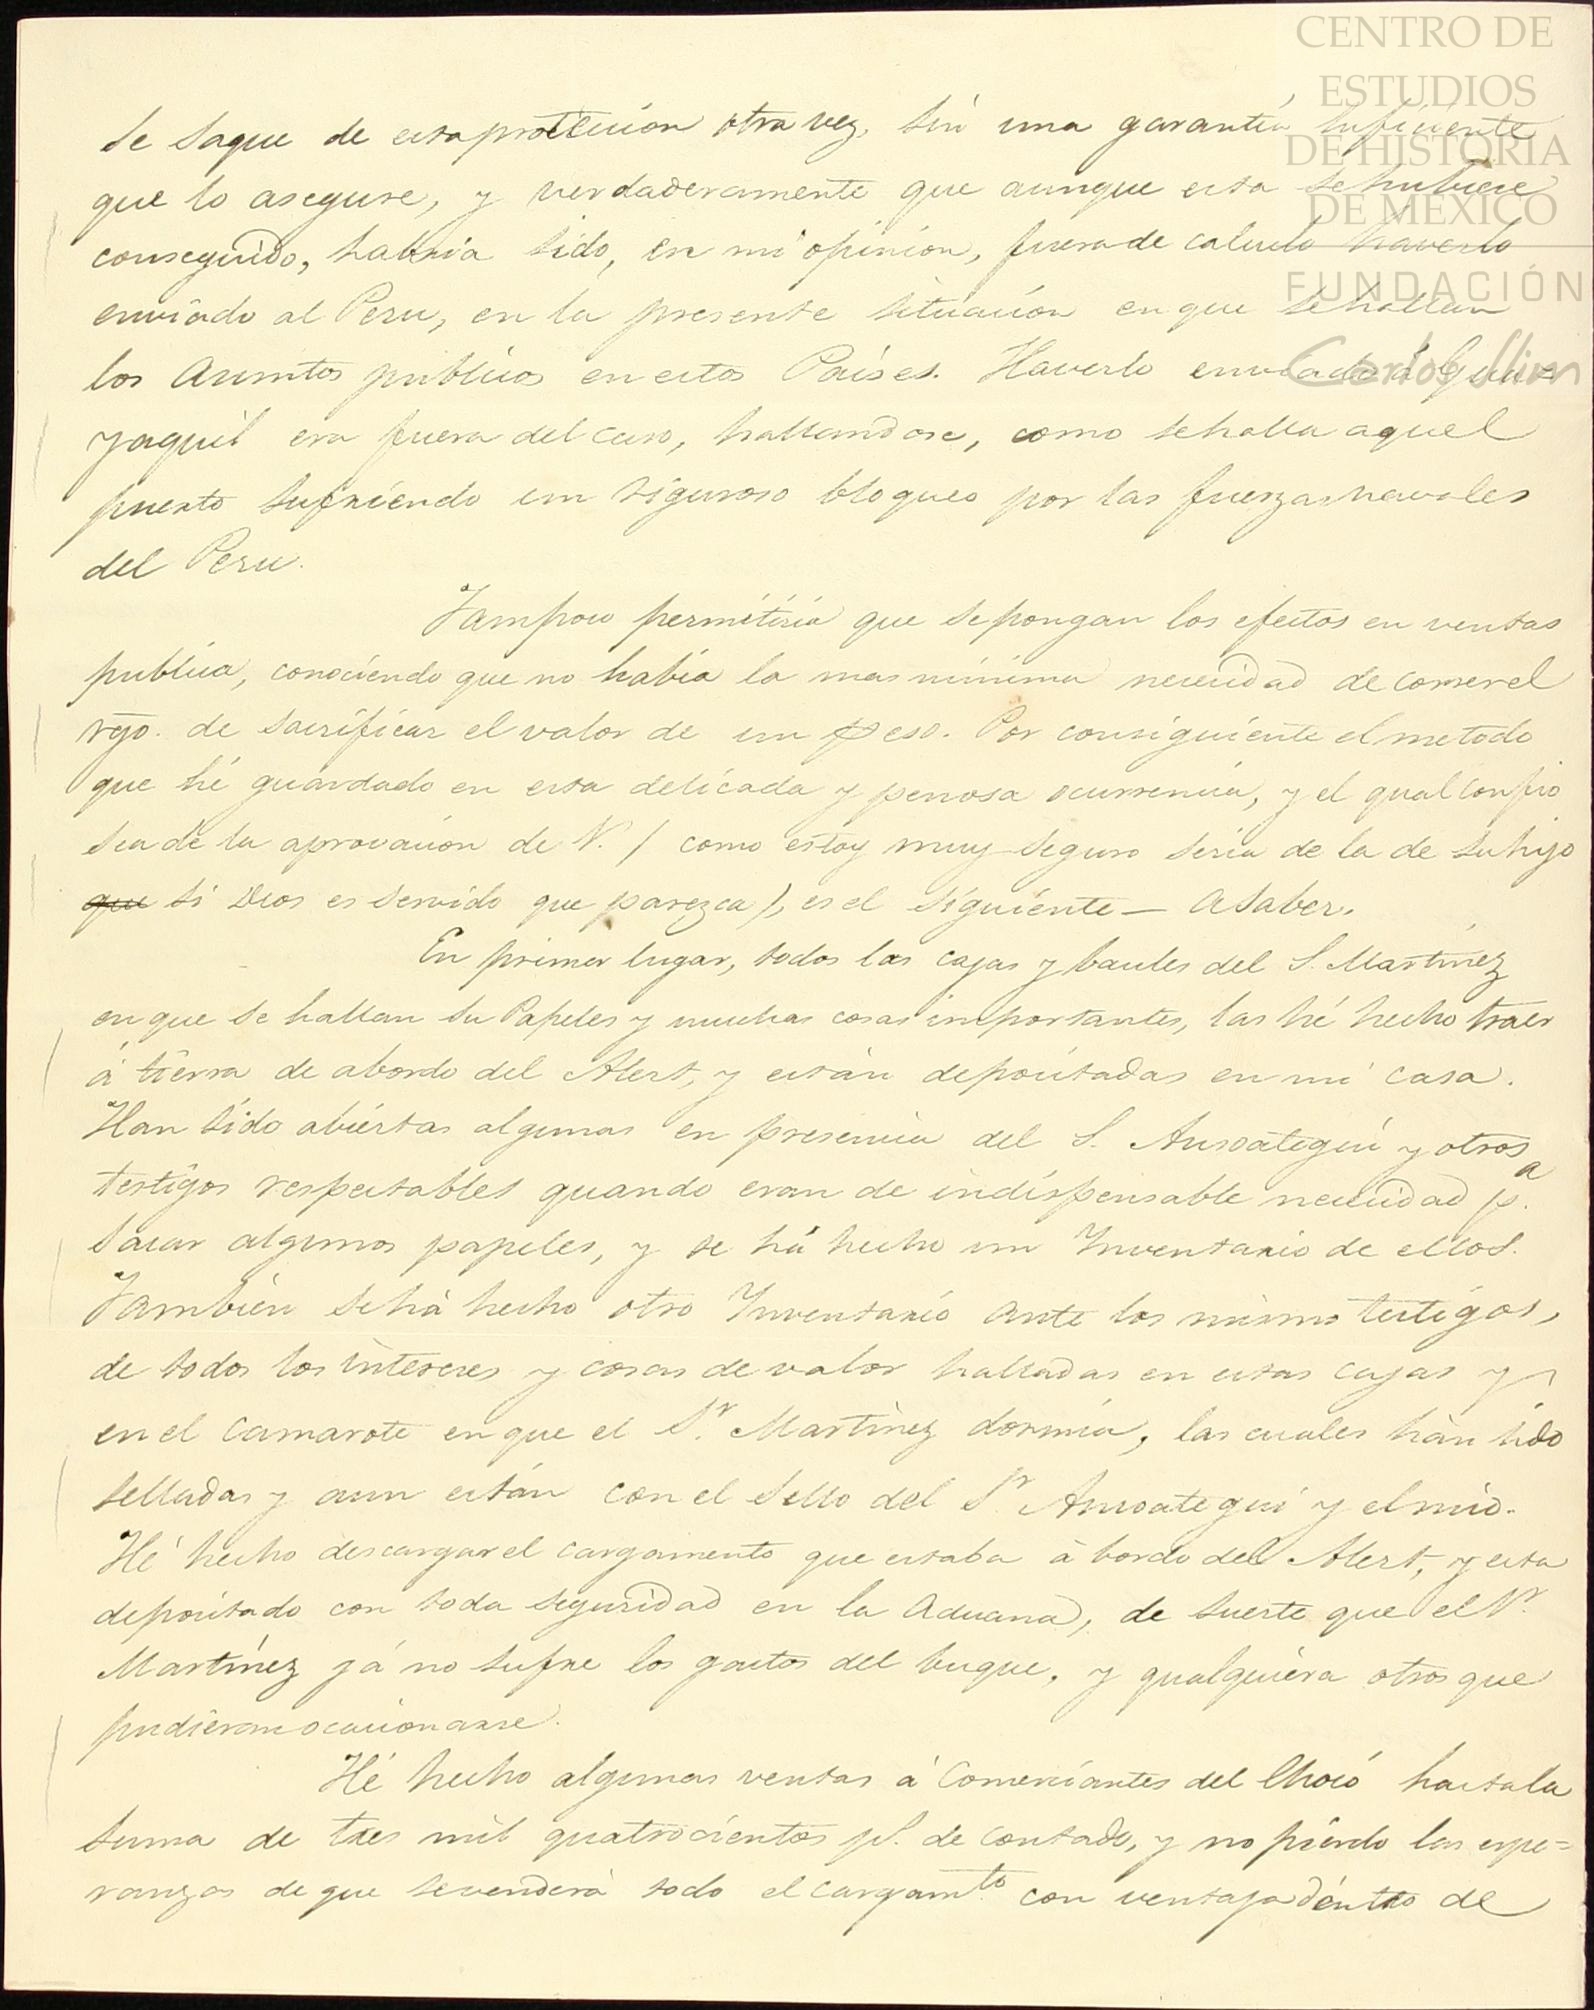 CENTRO DE
ESTUDIOS
DE HISTORIA
DE MÉXICO
FUNDACIÓN
Carlos Slim
se saque de esta proteccion otra vez, sin una garantia suficiente
que lo asegure, y verdaderamente que aunque esta se hubiese
conseguido, habria sido, en mi opinion, fuera de calculo haverlo
enviado al Peru, en la presente situacion en que se hallan
los Asuntos publicos en estos Paises. Haverlo enviado á Gua=
yaquil era fuera del caso, hallandose, como se halla aquel
puerto sufriendo un riguroso bloqueo por las fuerzas navales
del Peru.
Tampoco permitiria que se pongan los efectos en ventas
publica, conociendo que no habia la mas minima necesidad de correr el
rgo. de sacrificar el valor de un peso. Por consiguiente el metodo
que hé guardado en esta delicada y penosa ocurrencia, y el qual confio
sea de la aprovacion de V. ( como estoy muy seguro seria de la de su hijo
que si Dios es servido que parezca ), es el siguiente — A saber.
En primer lugar, todos las cajas y baules del S. Martinez
en que se hallan su Papeles y muchas cosas importantes, las hé hecho traer
á tierra de abordo del Alert, y están depositadas en mi casa.
Han sido abiertas algunas en presencia del S. Ansoategui y otros
testigos respectables quando eran de indispensable necesidad p.a
sacar algunos papeles, y se há hecho un Inventario de ellos.
Tambien se há hecho otro Inventario ante los mismo testigos,
de todos los intereses y cosas de valor halladas en estas cajas y
en el camarote en que el S.r Martinez dormia, las cuales hàn sido
selladas y aun están con el sello del S.r Ansoategui y el mio.
Hé hecho descargar el cargamento que estaba à bordo del Alert, y esta
depositado con toda seguridad en la Aduana, de suerte que el S.r
Martinez yá no sufre los gastos del buque, y qualquiera otros que
pudieran ocacionarse.
Hé hecho algunas ventas á Comerciantes del Chocó hasta la
suma de tres mil quatrocientos ps. de contado, y no pierdo las espe=
ranzas de que se venderà todo el cargam.to con ventaja déntro de